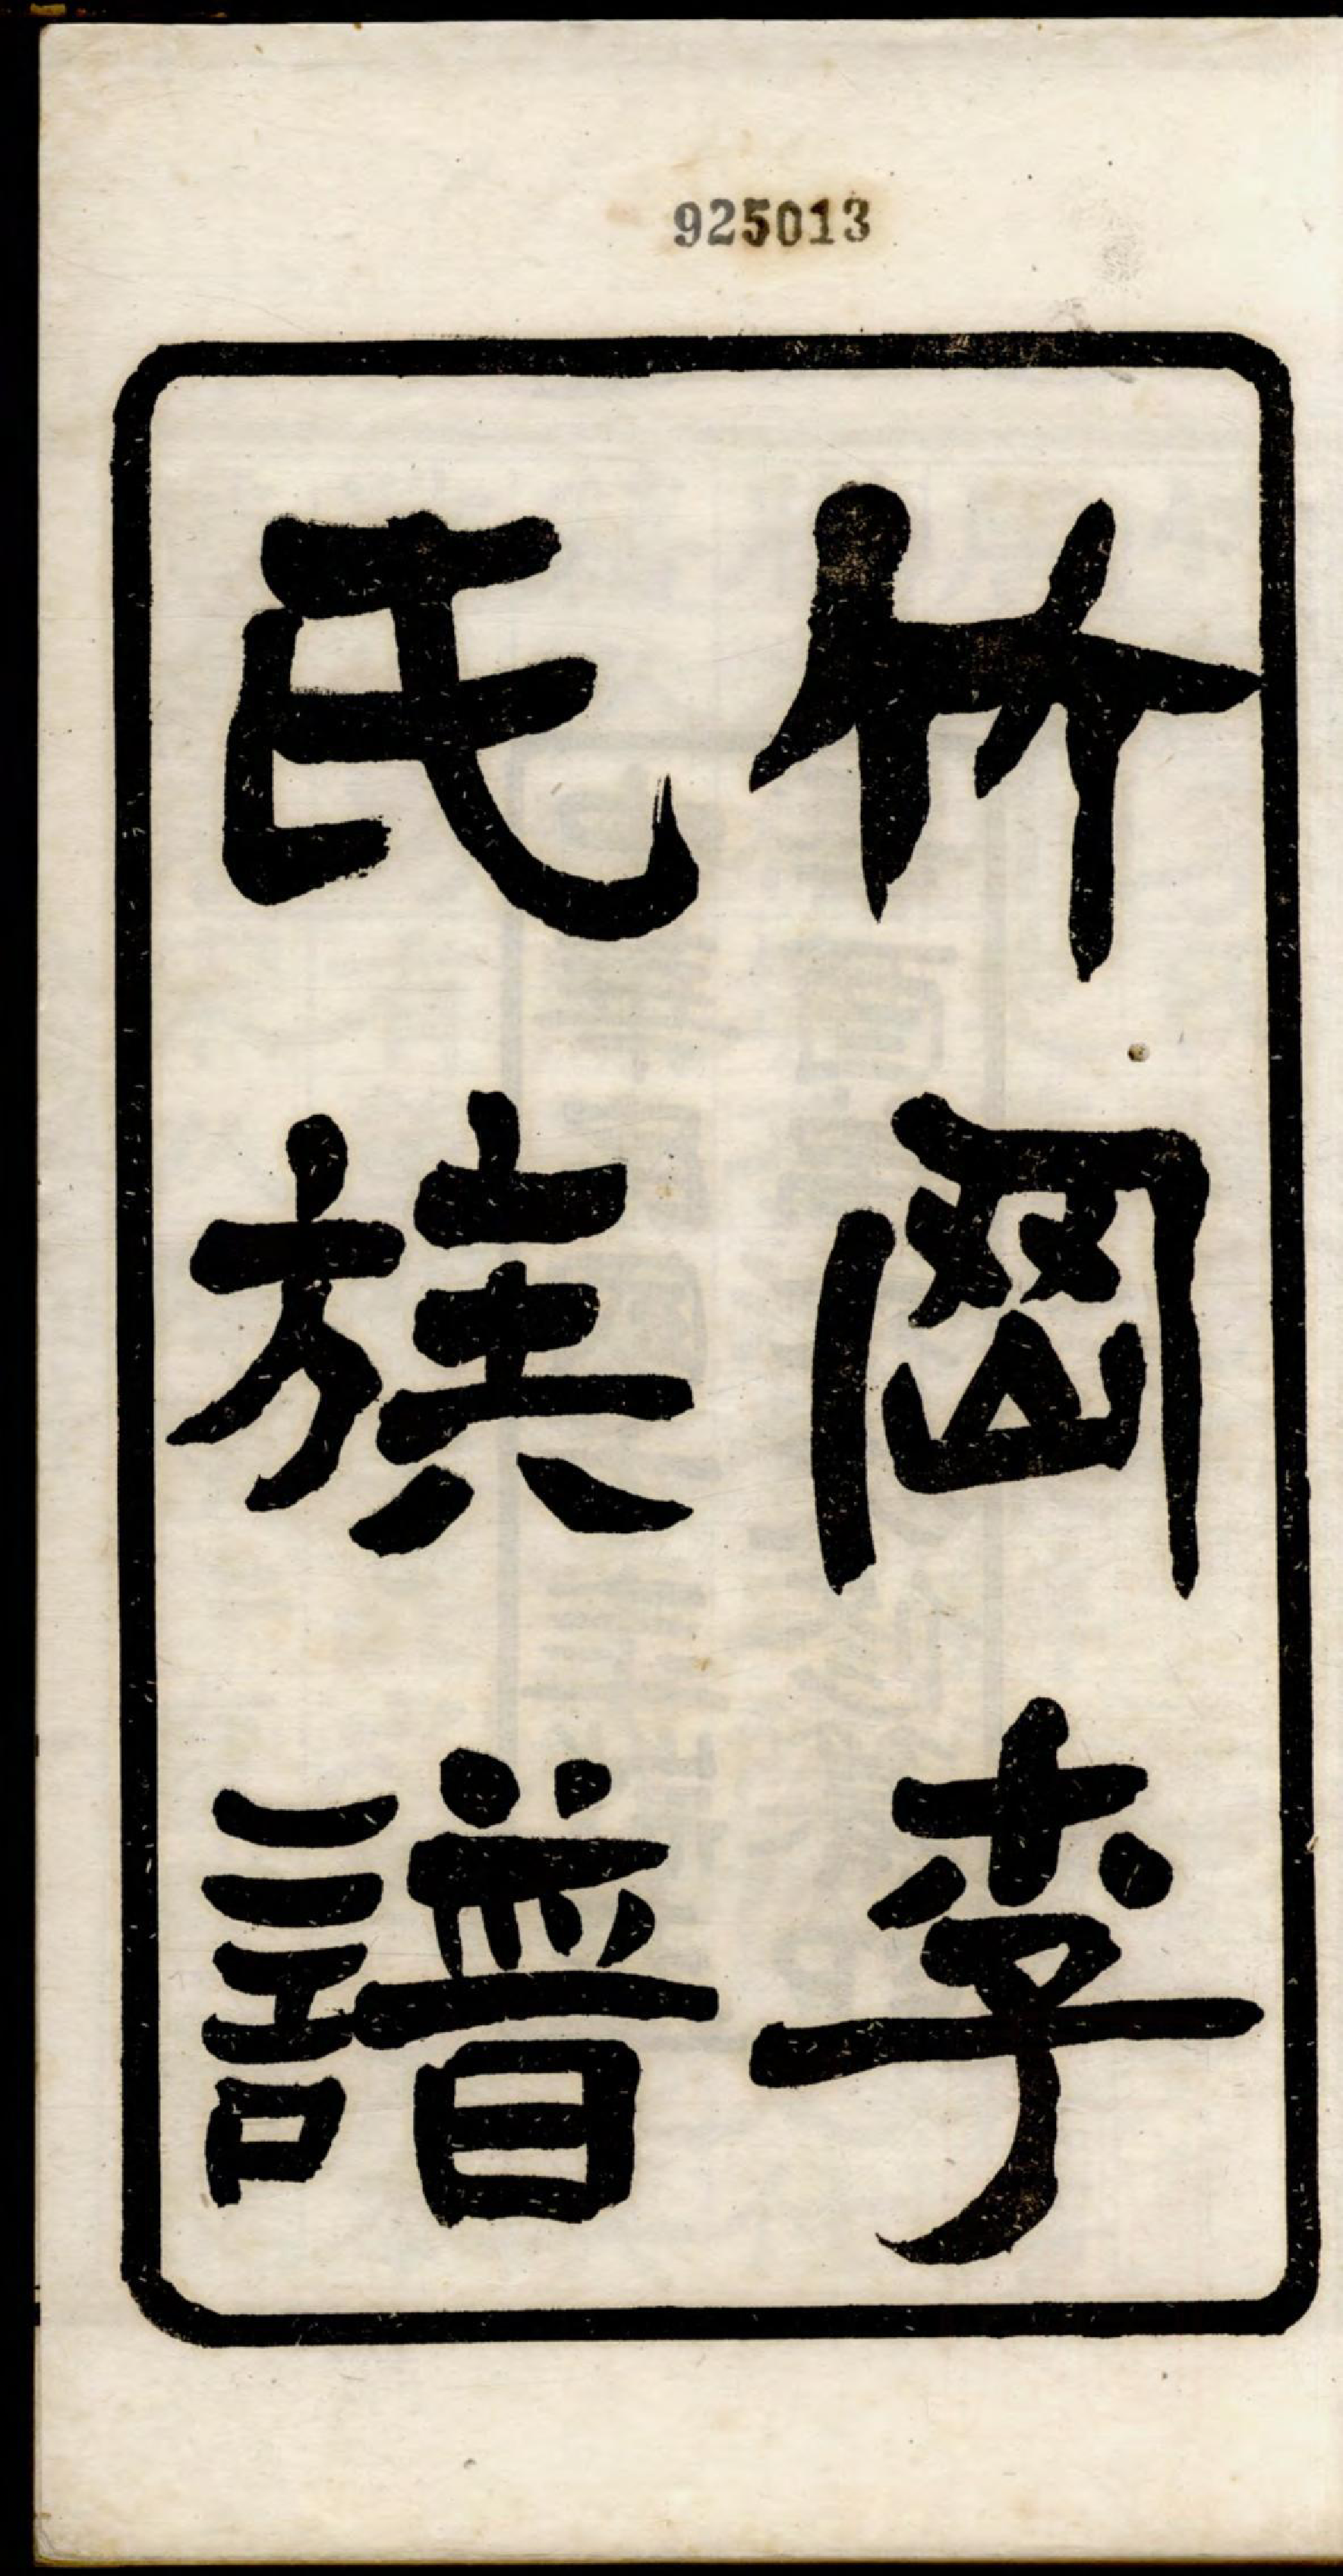 925013
竹岡李
氏族譜